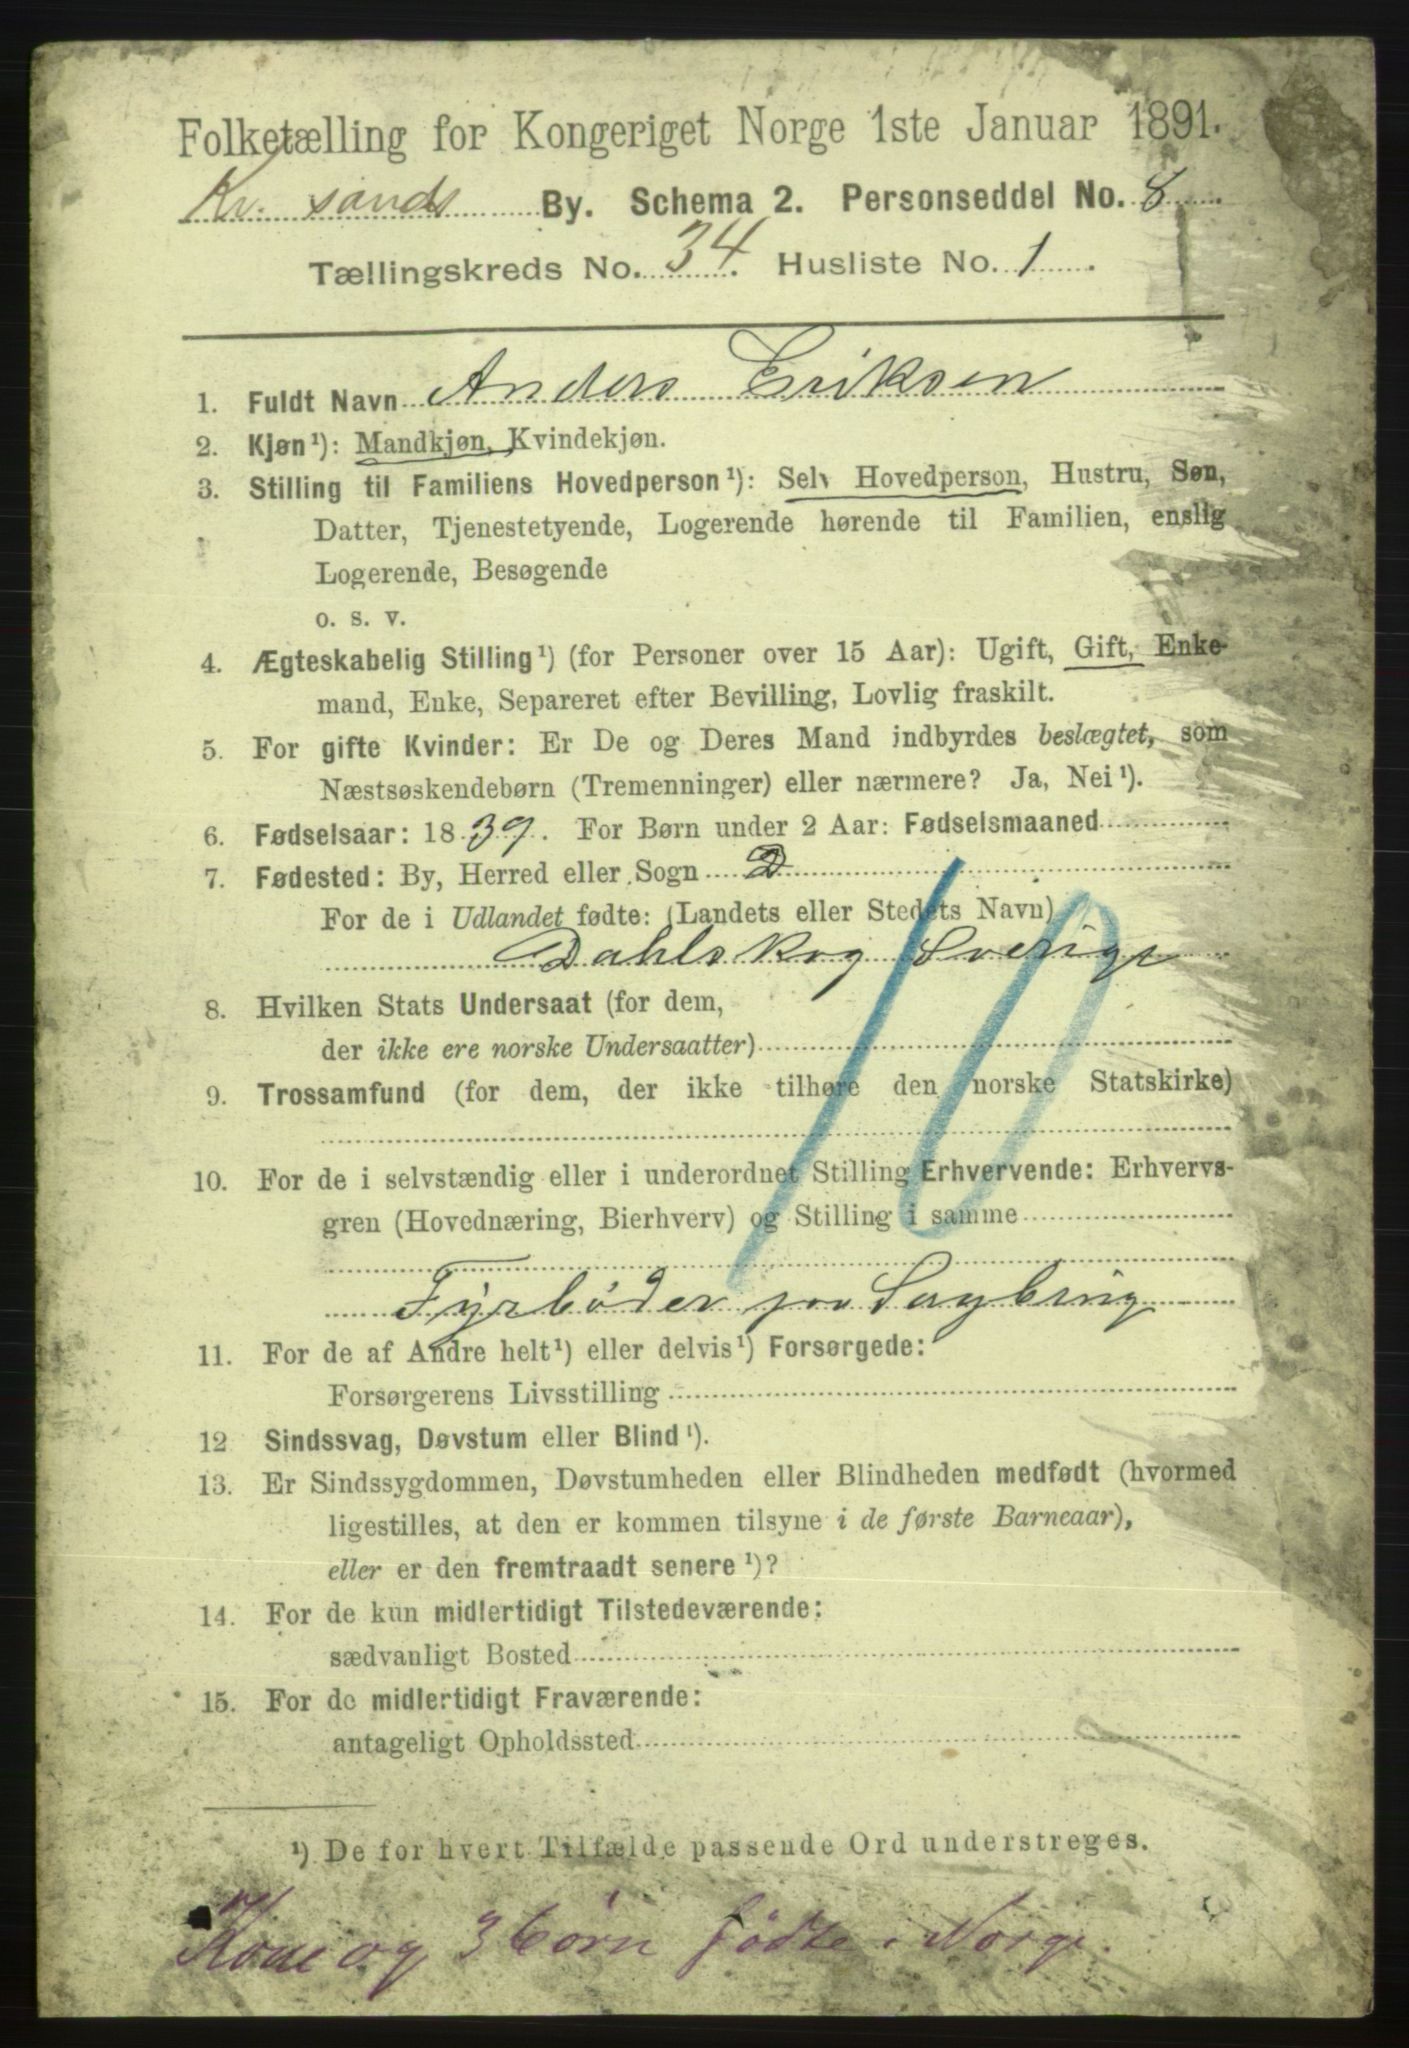 Folketælling for Kongeriget Norge 1ste Januar 1891.
Kr. sands By. Schema 2. Personseddel No. 8
Tællingskreds No. 34. Husliste No. 1.
1. Fuldt Navn Anders Eriksen
2. Kjøn¹): Mandkjøn, Kvindekjøn.
3. Stilling til Familiens Hovedperson¹): Selv Hovedperson, Hustru, Søn,
Datter, Tjenestetyende, Logerende hørende til Familien, enslig
Logerende, Besøgende
o. s. v.
4. Ægteskabelig Stilling¹) (for Personer over 15 Aar): Ugift, Gift, Enke-
mand, Enke, Separeret efter Bevilling, Lovlig fraskilt.
5. For gifte Kvinder: Er De og Deres Mand indbyrdes beslægtet, som
Næstsøskendebørn (Tremenninger) eller nærmere? Ja, Nei¹).
6. Fødselsaar: 1839. For Børn under 2 Aar: Fødselsmaaned
7. Fødested: By, Herred eller Sogn D
For de i Udlandet fødte: (Landets eller Stedets Navn)
Dahlskog Sverige
10
8. Hvilken Stats Undersaat (for dem,
der ikke ere norske Undersaatter)
9. Trossamfund (for dem, der ikke tilhøre den norske Statskirke)
10. For de i selvstændig eller i underordnet Stilling Erhvervende: Erhvervs-
gren (Hovednæring, Bierhverv) og Stilling i samme
Fyrbøder
11. For de af Andre helt¹) eller delvis¹) Forsørgede:
Forsørgerens Livsstilling
12 Sindssvag, Døvstum eller Blind¹).
13. Er Sindssygdommen, Døvstumheden eller Blindheden medfødt (hvormed
ligestilles, at den er kommen tilsyne i de første Barneaar),
eller er den fremtraadt senere¹)?
14. For de kun midlertidigt Tilstedeværende:
sædvanligt Bosted
15. For de midlertidigt Fraværende:
antageligt Opholdssted
¹) De for hvert Tilfælde passende Ord understreges.
Kone og 3 børn fødte i Norge.